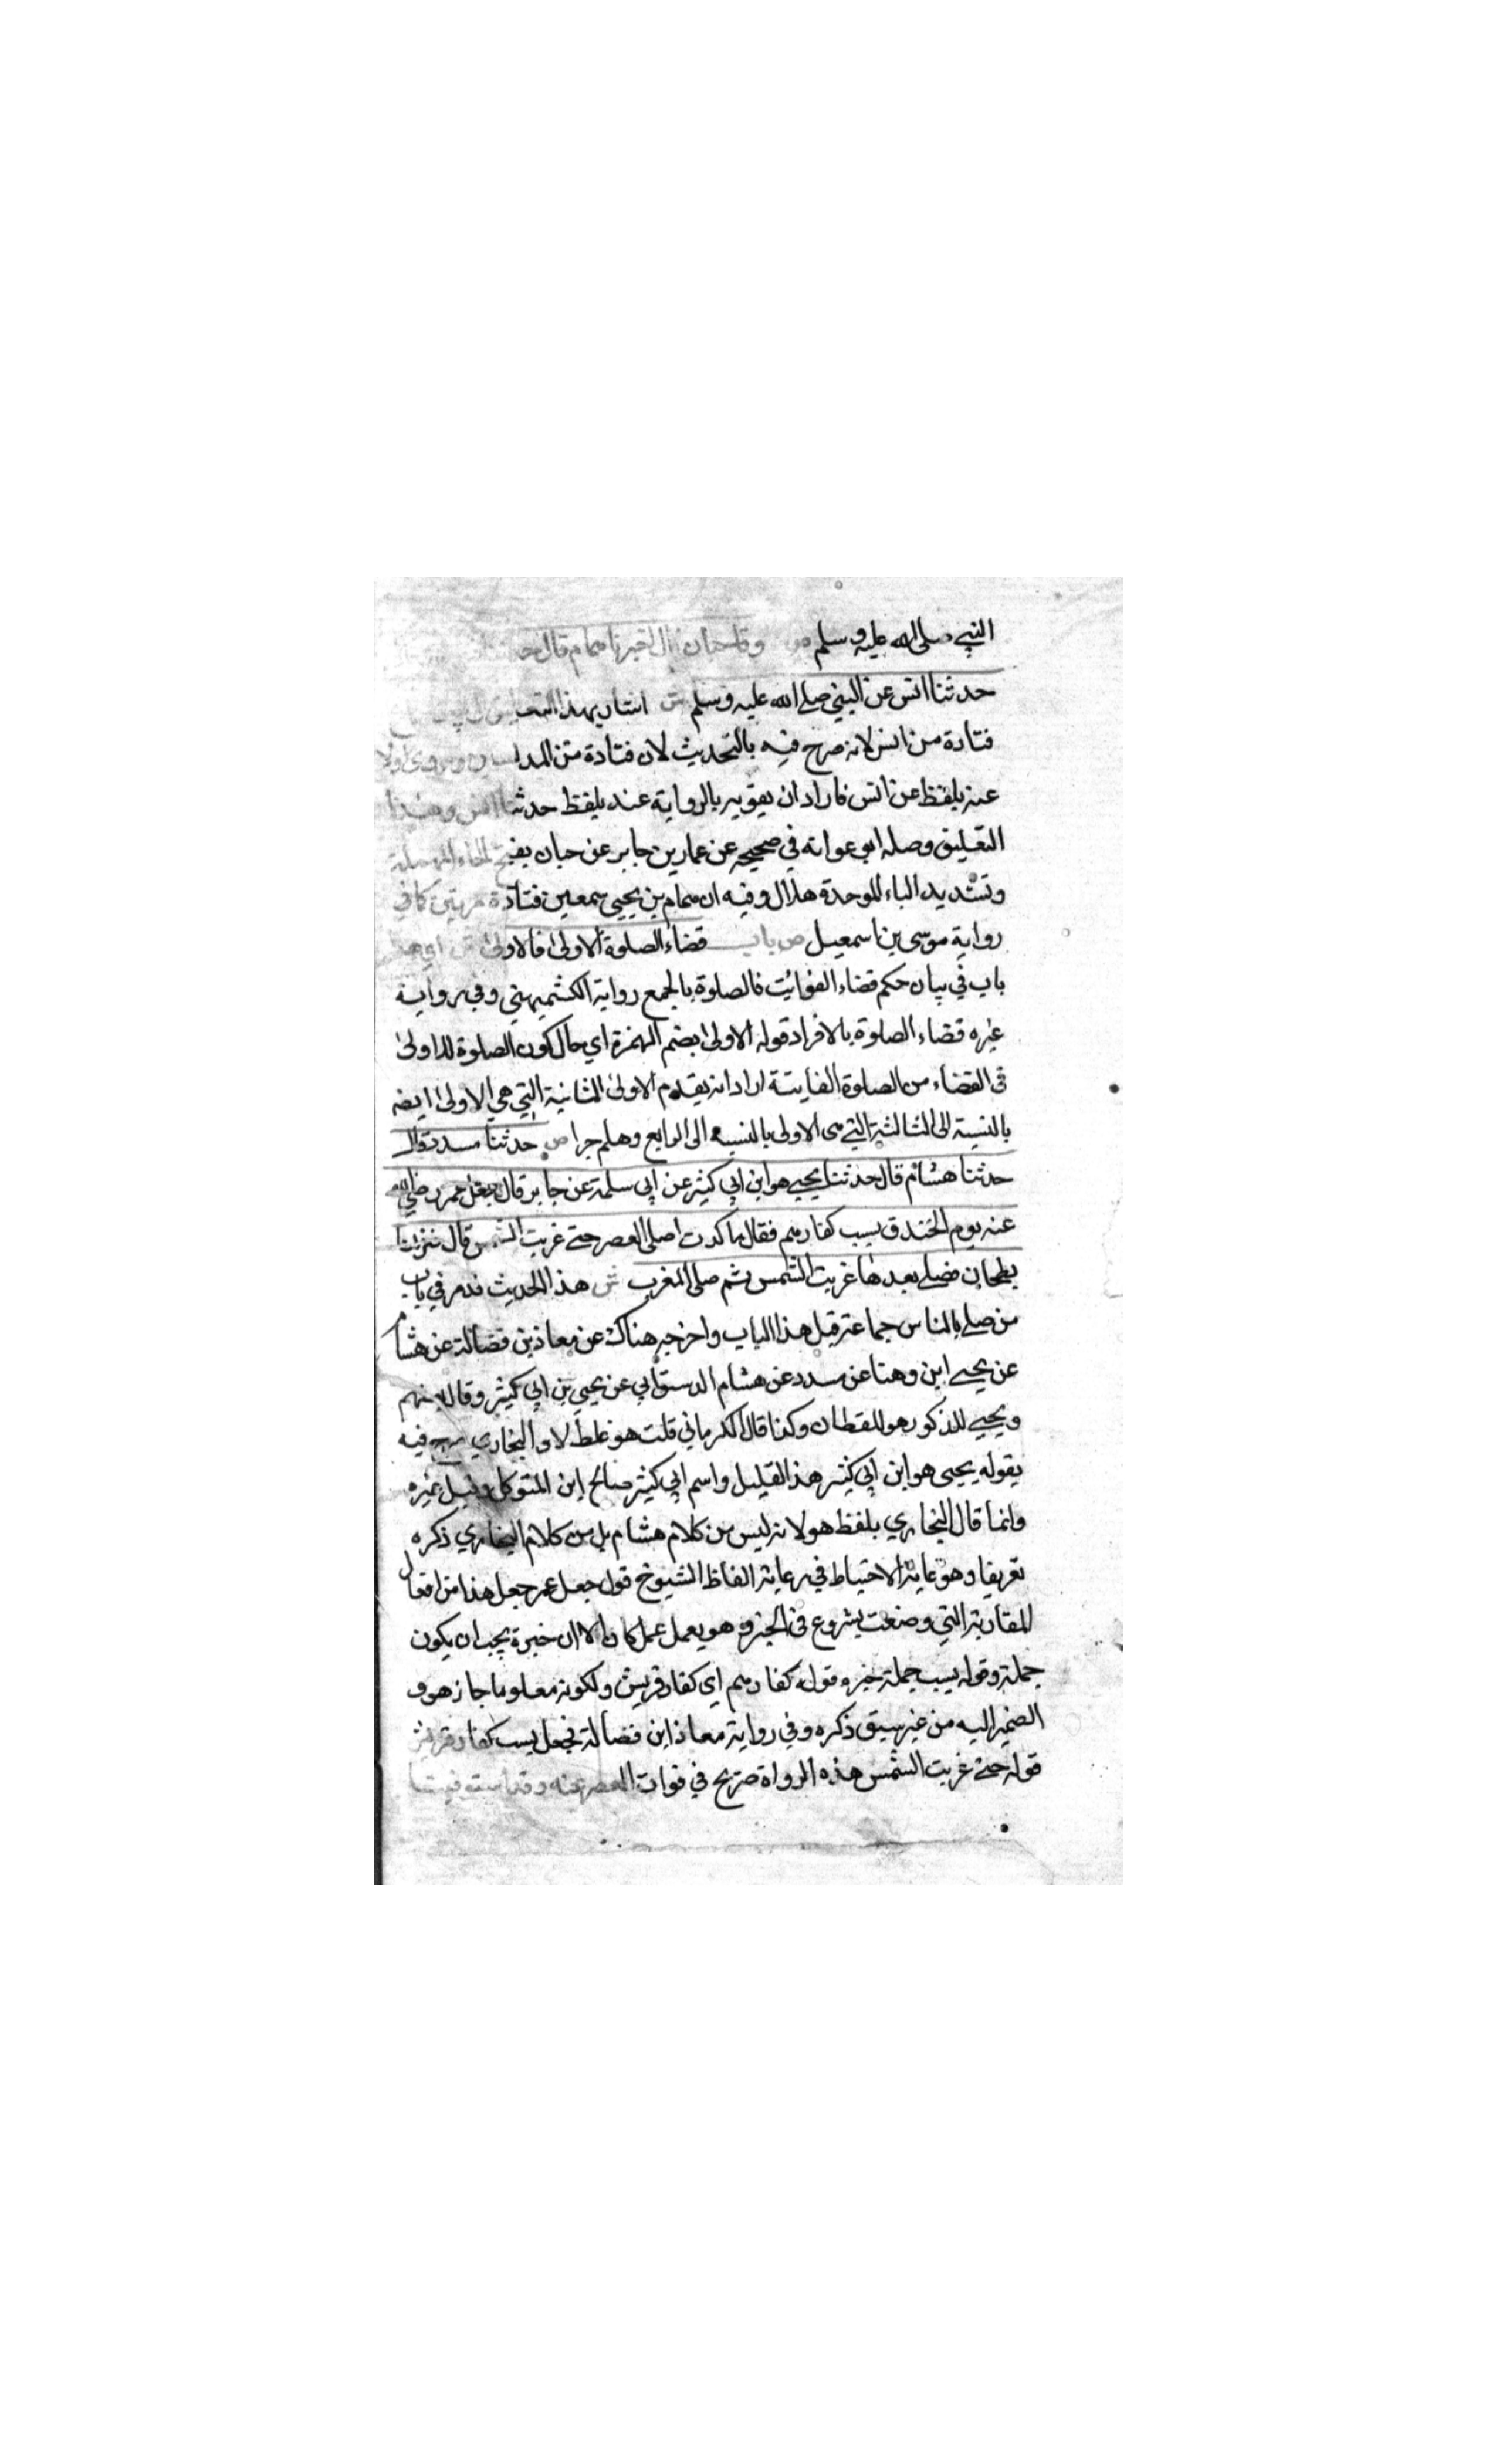 النبي صلى الله عليه وسلم ص وقال حبان قال اخبرنا همام قال حدثنا
حدثنا انس عن النبي صلى الله عليه وسلم ش اشار بهذا التعليق
قتادة من انس لانه صرح فيه بالتحديث لان قتادة من المدلسين وروى اولا
عنه بلفظ عن انس فاراد ان يقويه بالرواية عنه بلفظ حدثنا انس وهذا
التعليق وصله ابو عوانه في صحيحه عن عمار بن جابر عن حبان بفتح الحاء المهملة
وتشديد الباء الموحدة هلال وفيه ان همام بن يحيى سمع من قتادة مرتين كما في
رواية موسى بن اسمعيل ص باب قضاء الصلوة الاولى فالاولى ش اي هذا
باب في بيان حكم قضاء الفوائت فالصلوة بالجمع رواية الكشميهني وفي رواية
غيره قضاء الصلوة بالافراد قوله الاولى بضم الهمزة اي حال كون الصلوة الاولى
في القضاء من الصلوة الفايتة اراد انه يقدم الاولى الثانية التي هي الاولى ايضه
بالنسبة الى الثالثة التي هى الاولى بالنسبه الى الرابع وهلم جرا ص حدثنا مسدد قال
حدثنا هشام قال حدثنا يحيى هو ابن ابي كثير عن ابي سلمة عن جابر قال جعل عمر رضي الله
عنه يوم الخندق يسب كفارهم فقال ما كدت اصلى العصر حتى غربت الشمس قال فنزلنا
بطحان فصلى بعد ما غربت الشمس ثم صلى المغرب ش هذا الحديث قد مر في باب
من صلى بالناس جماعة قبل هذا الباب واخرجه هناك عن معاذ بن فضالة عن هشام
عن يحيى ابن وهنا عن مسدد عن هشام الدستوآيي عن يحيى بن ابي كثير وقال بعضهم
ويحيى المذكور هو القطان وكذا قال الكرماني قلت هو غلط لان البخاري صرح فيه
بقوله يحيى هو ابن ابي كثير هذا القليل واسم ابي كثير صالح ابن المتوكل وقيل غيره
وانما قال البخاري بلفظ هو لانه ليس من كلام هشام بل من كلام البخاري ذكره
تعريفا وهو غاية الاحتياط في رعاية الفاظ الشيوخ قوله جعل عمر جعل هذا من افعال
المقاربة التي وضعت يشروع في الخبر وهو يعمل عمل كان الا ان خبره يجب ان يكون
جملة وقوله يسب جملة خبره قوله كفارهم اي كفار قريش ولكونه معلوما جاز هوف
الضمير اليه من غير سبق ذكره وفي رواية معاذ ابن فضالة فجعل يسب كفار قريش
قوله حتى غربت الشمس هذه الرواة صريح في فوات العصر عنه وقد استوفينا